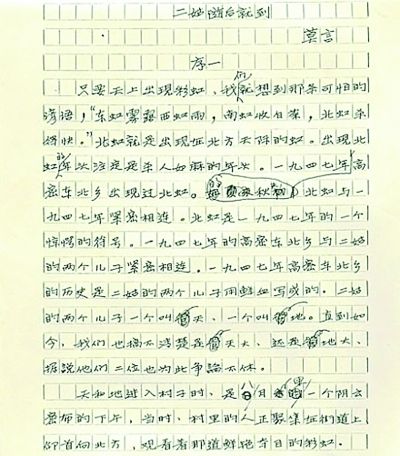 二姑随后就到
莫言
序一
只要天上出现彩虹，我们就想到那条可怕的
谚语："东虹雾露西虹雨，南虹收白菜，北虹杀
得快。"北虹就是出现在北方天际的虹。出现北
虹的年头注定是杀人如麻的年头。一九四七年高
密东北乡出现过北虹。北虹与一
九四七年紧密相连。北虹是一九四七年的一个
惊悸的符号。一九四七年的高密东北乡与二姑
的两个儿子紧密相连，一九四七年高密东北乡
的历史是二姑的两个儿子用鲜血写成的。二姑
的两个儿子一个叫天，一个叫地。直到如
今，我们也搞不清楚是天大，还是地大，
据说他们二位也为此争论不休。
天和地进入村子时，是八月里一个阴云
密布的下午，当时，村里的人正聚集在街道上
仰首向北方，观看着那道鲜艳夺目的彩虹。